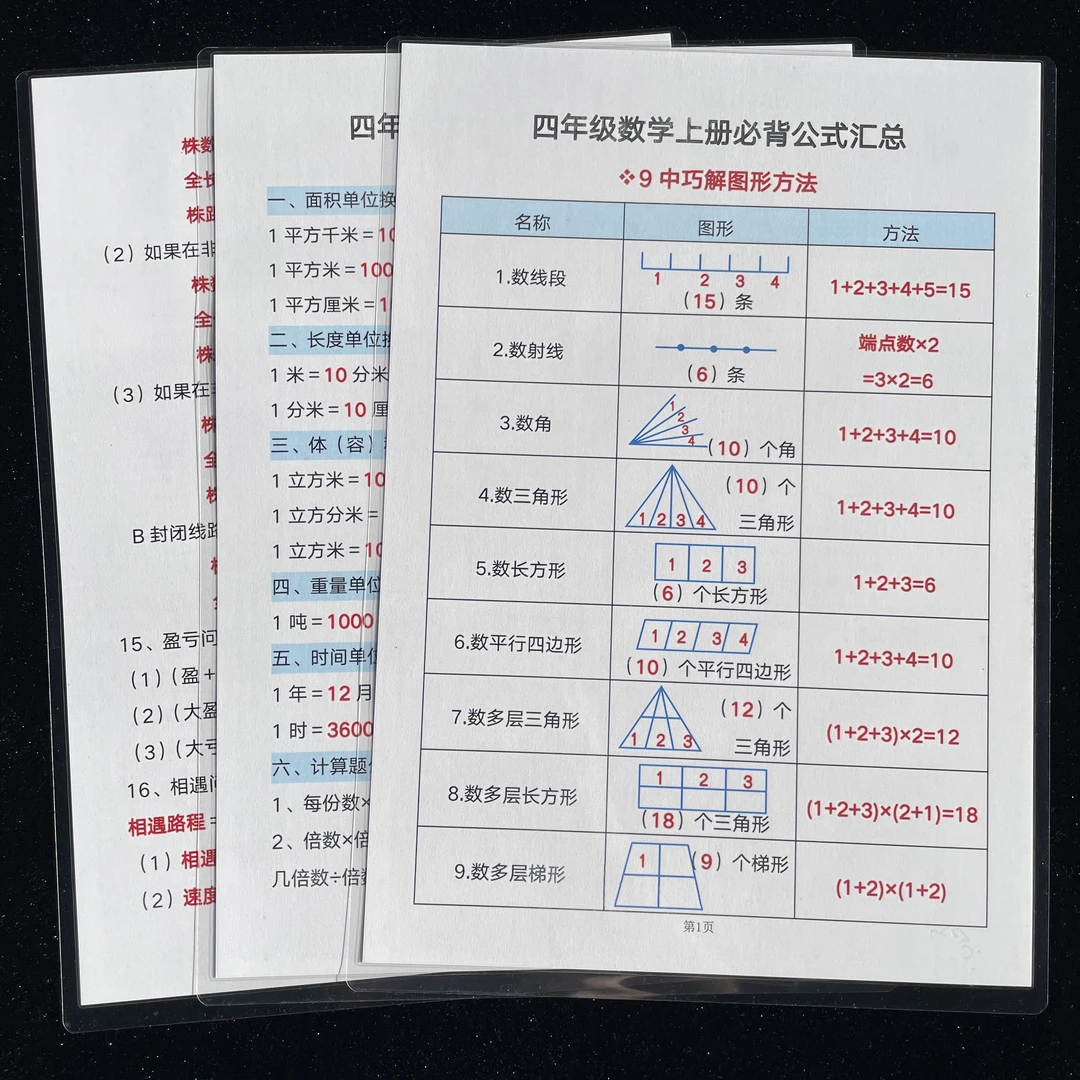 四年级数学上册必背公式汇总
❖9 中巧解图形方法
名称 图形 方法
1.数线段 1 2 3 4 (15) 条 1+2+3+4+5=15
2.数射线 (6) 条 端点数×2 =3×2=6
3.数角 1 2 3 4 (10) 个角 1+2+3+4=10
4.数三角形 1 2 3 4 (10) 个 三角形 1+2+3+4=10
5.数长方形 1 2 3 (6) 个长方形 1+2+3=6
6.数平行四边形 1 2 3 4 (10) 个平行四边形 1+2+3+4=10
7.数多层三角形 1 2 3 (12) 个 三角形 (1+2+3)×2=12
8.数多层长方形 1 2 3 (18) 个三角形 (1+2+3)×(2+1)=18
9.数多层梯形 1 (9) 个梯形 (1+2)×(1+2)
第1页
四年
一、面积单位换
1 平方千米=10
1 平方米=100
1 平方厘米=1
二、长度单位
1 米=10 分米
1 分米=10 厘
三、体（容）
1 立方米=10
1 立方分米=
1 立方米=10
四、重量单位
1 吨=1000
五、时间单位
1 年=12 月
1 时=3600
六、计算题
1、每份数×
2、倍数×倍
几倍数÷倍数
株数
全长
株距
（2）如果在非
株数
全
株
（3）如果在非
株
全
株
B 封闭线路
15、盈亏问
（1）（盈＋
（2）（大盈
（3）（大亏
16、相遇问
相遇路程=
（1）相遇
（2）速度